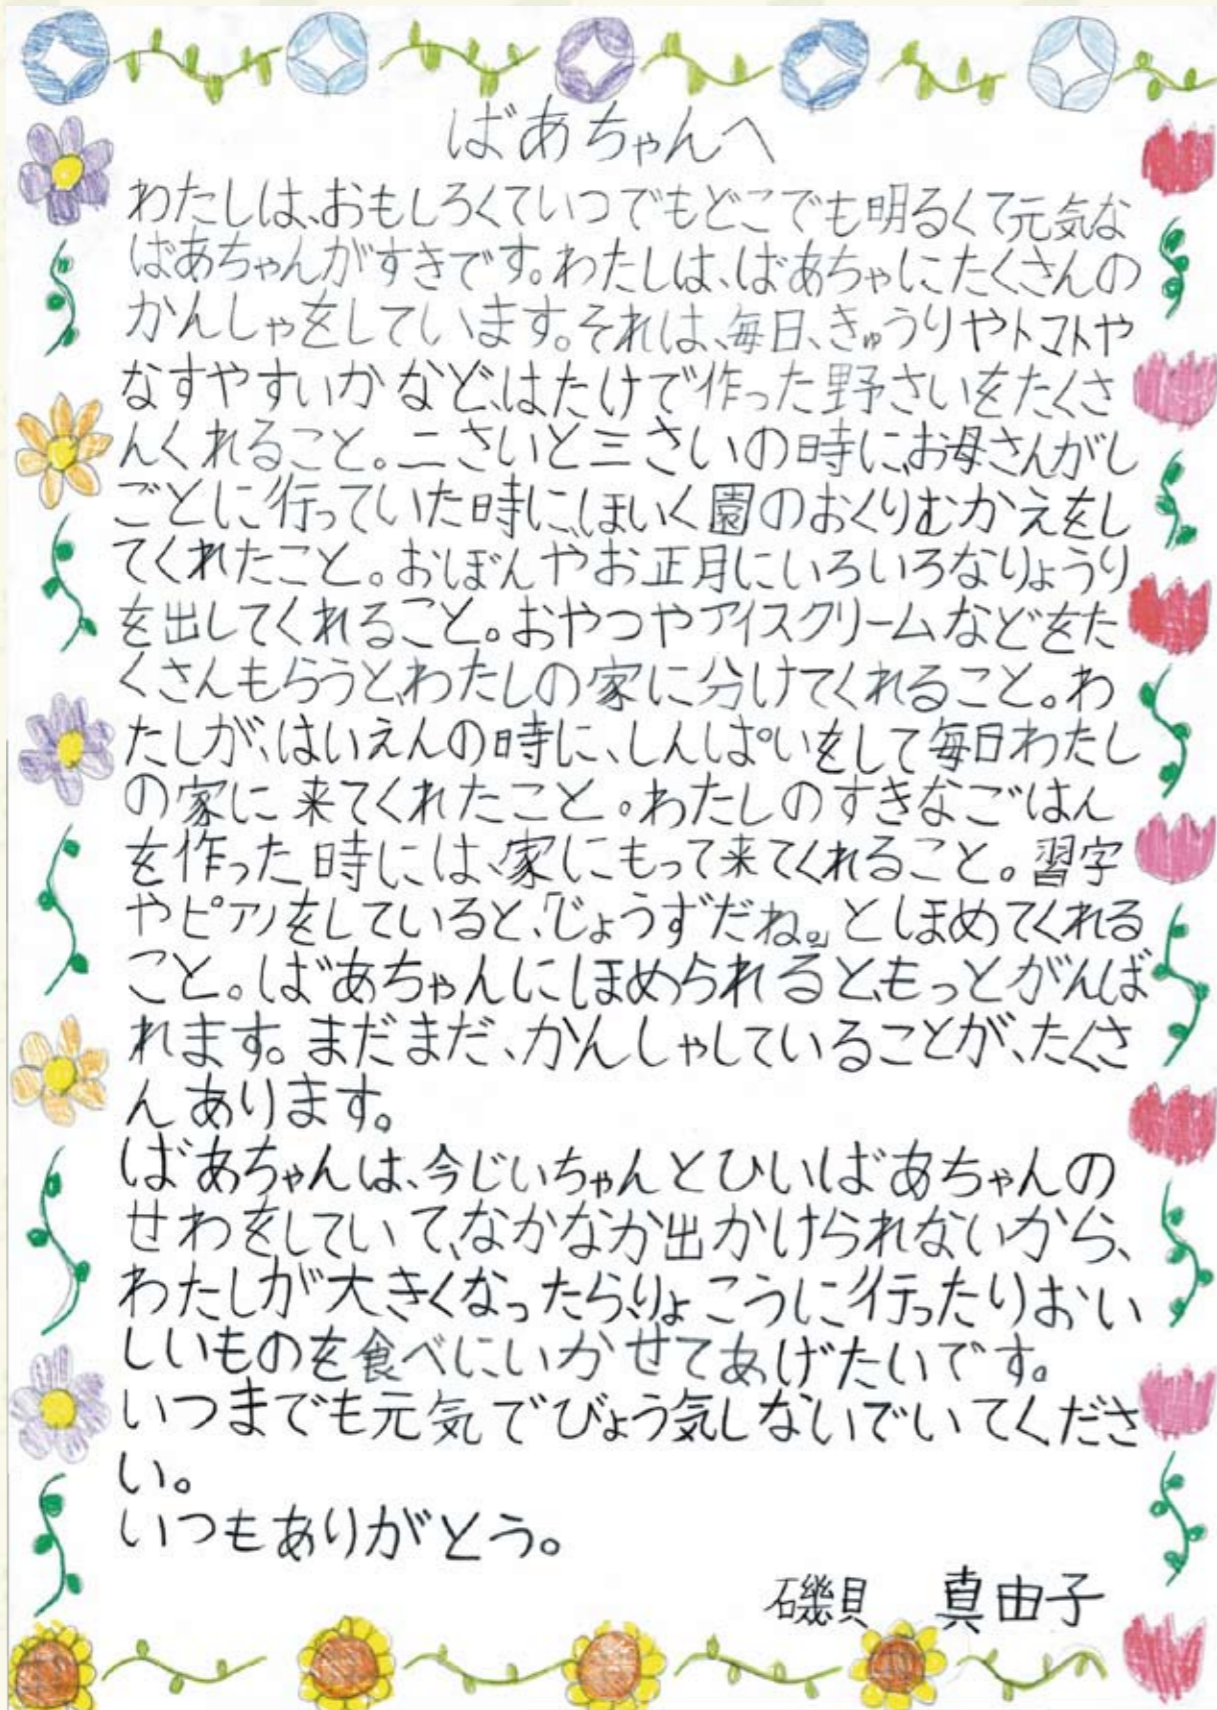 ばあちゃんへ
わたしは、おもしろくていつでもどこでも明るくて元気な
ばあちゃんがすきです。わたしは、ばあちゃにたくさんの
かんしゃをしています。それは、毎日、きゅうりやトマトや
なすやすいかなど、はたけで作った野さいをたくさ
んくれること。二さいと三さいの時に、お母さんがし
ごとに行っていた時に、ほいく園のおくりむかえをし
てくれたこと。おぼんやお正月にいろいろなりょうり
を出してくれること。おやつやアイスクリームなどをた
くさんもらうと、わたしの家に分けてくれること。わ
たしが、はいえんの時に、しんぱいをして毎日わたし
の家に来てくれたこと。わたしのすきなごはん
を作った時には、家にもって来てくれること。習字
やピアノをしていると、「じょうずだね。」とほめてくれる
こと。ばあちゃんにほめられると、もっとがんば
れます。まだまだ、かんしゃしていることが、たくさ
んあります。
ばあちゃんは、今じいちゃんとひいばあちゃんの
せわをしていて、なかなか出かけられないから、
わたしが大きくなったら、りょこうに行ったりおい
しいものを食べにいかせてあげたいです。
いつまでも元気でびょう気しないでいてくださ
い。
いつもありがとう。
磯貝 真由子